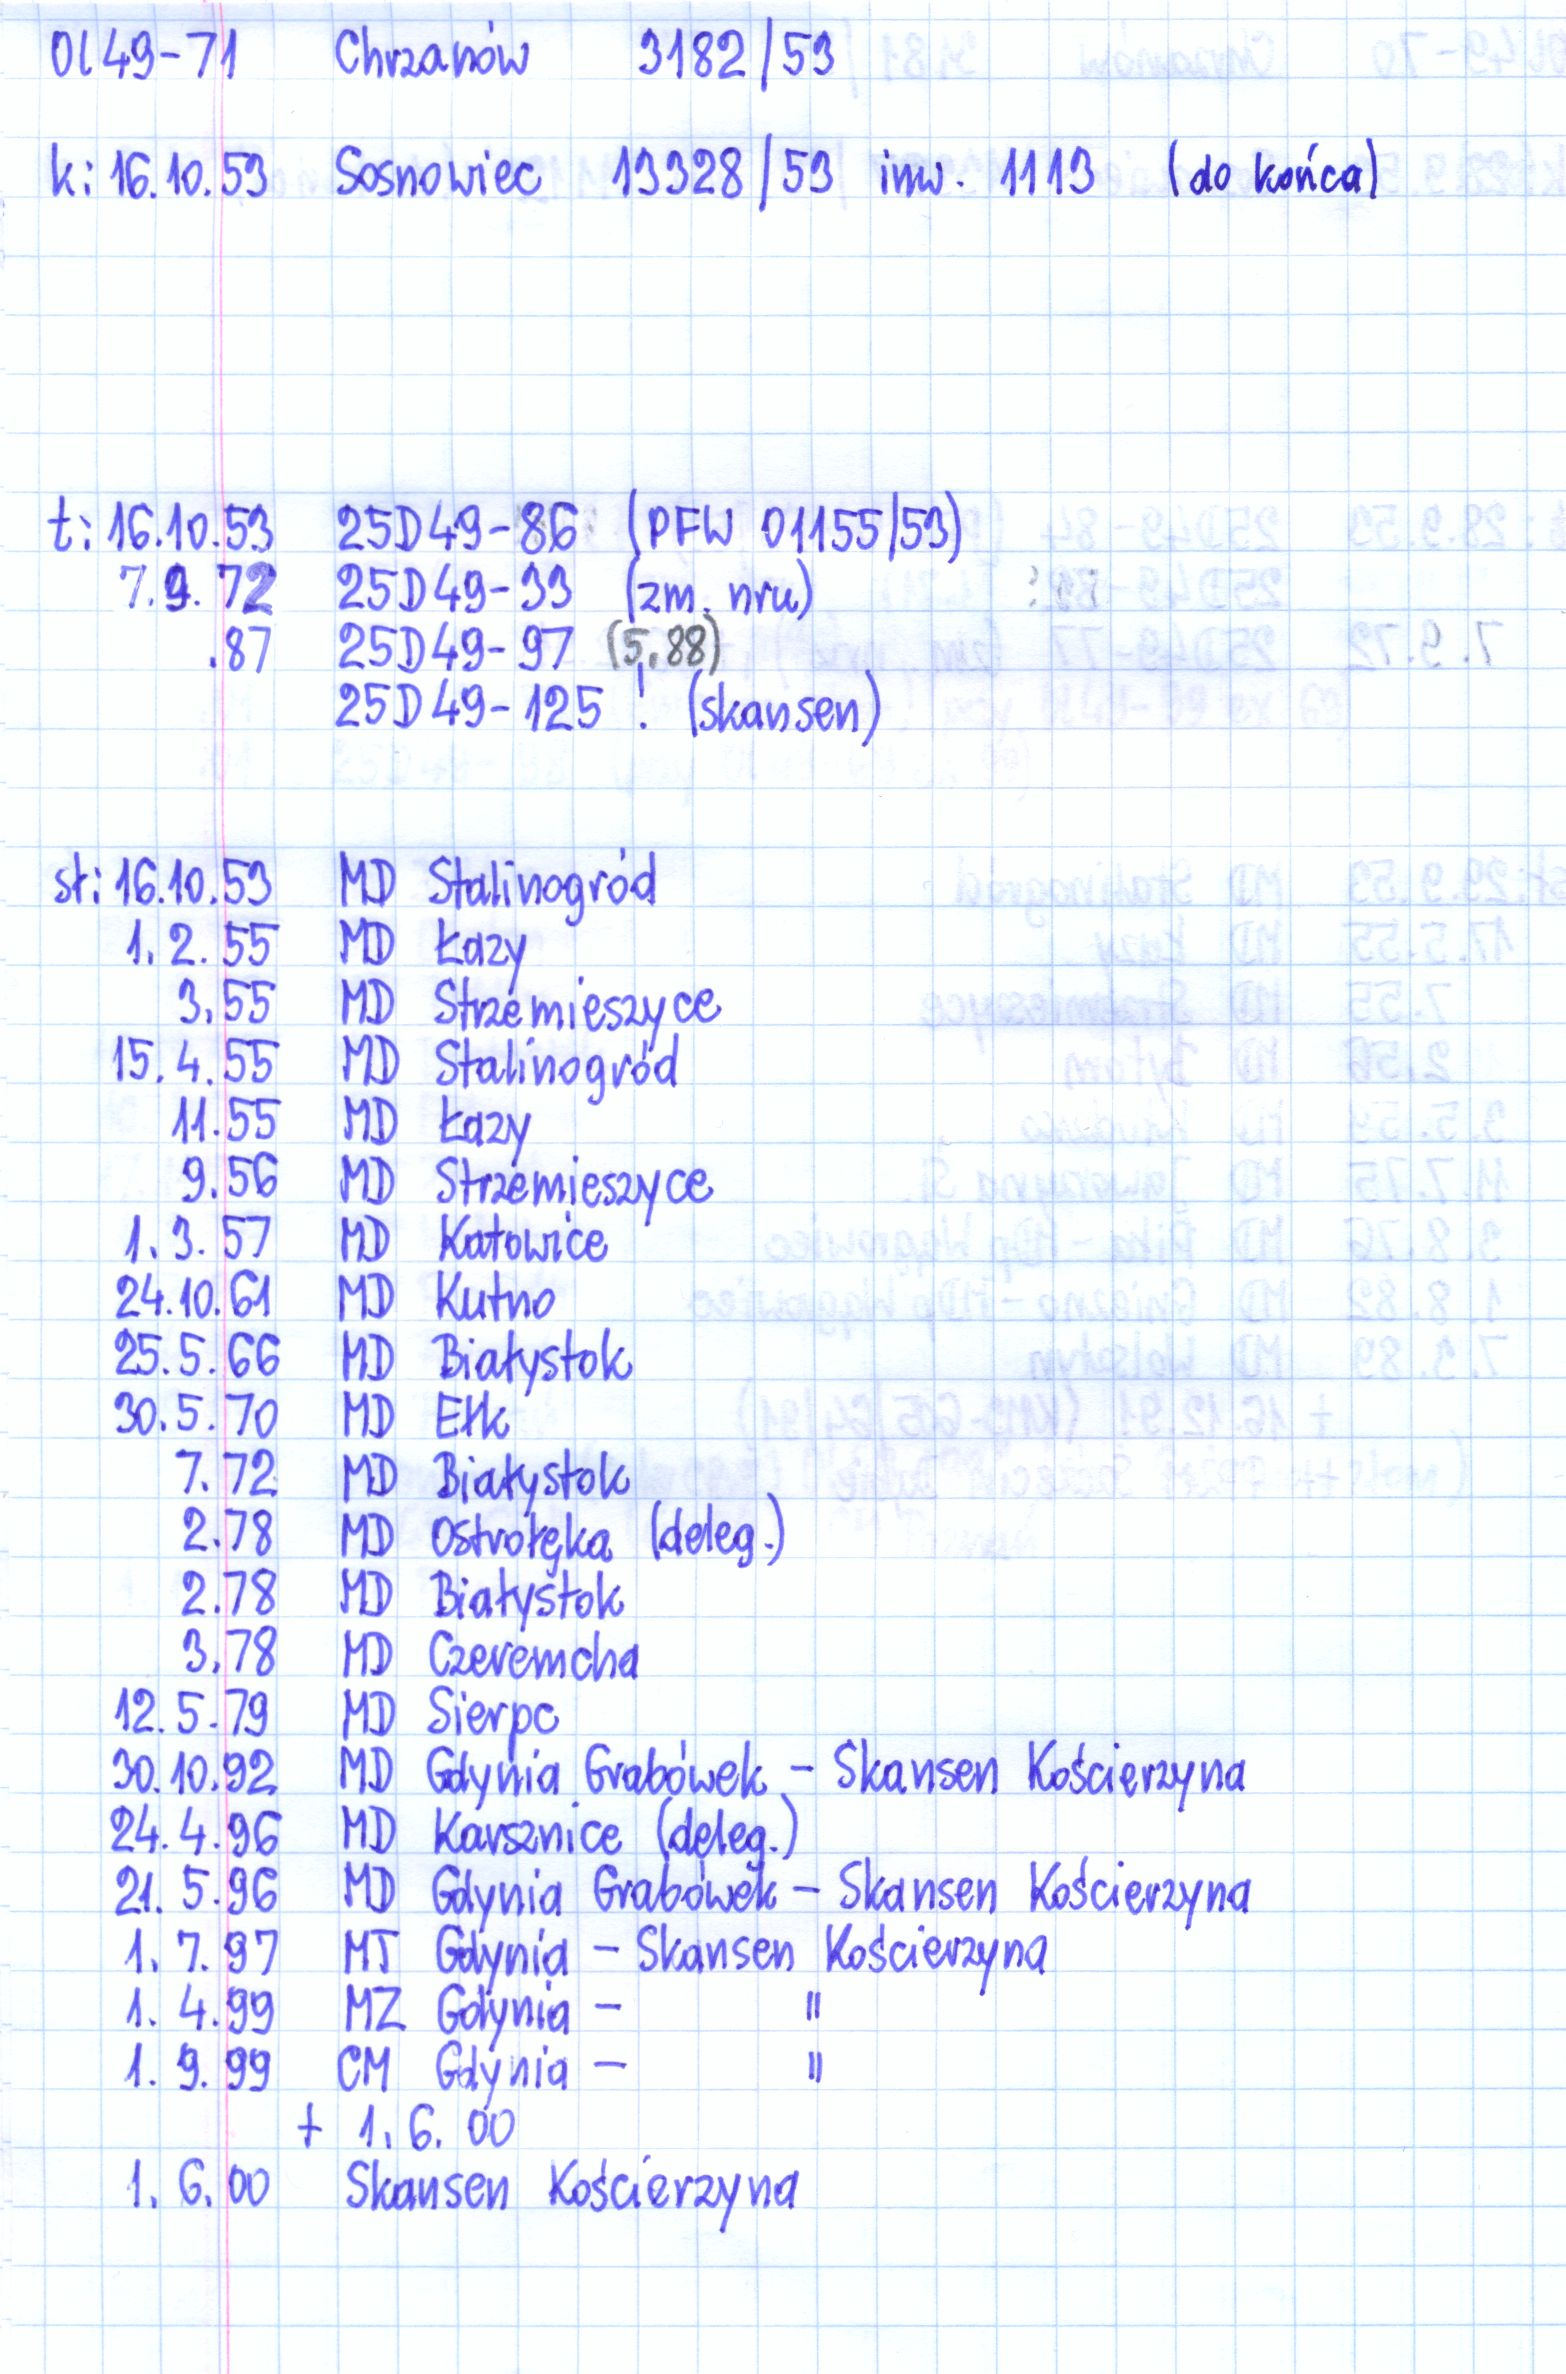 Ol49-71 Chrzanów 3182/53
k: 16.10.53 Sosnowiec 13328/53 inw. 1113 (do końca)
t: 16.10.53 25D49-86 (PFW 01155/53)
7.9.72 25D49-33 (zm. nru)
.87 25D49-97 (5.88)
25D49-125 ! (skansen)
st: 16.10.53 MD Stalinogród
1.2.55 MD Łazy
3.55 MD Strzemieszyce
15.4.55 MD Stalinogród
11.55 MD Łazy
9.56 MD Strzemieszyce
1.3.57 MD Katowice
24.10.61 MD Kutno
25.5.66 MD Białystok
30.5.70 MD Ełk
7.72 MD Białystok
2.78 MD Ostrołęka (deleg.)
2.78 MD Białystok
3.78 MD Czeremcha
12.5.79 MD Sierpc
30.10.92 MD Gdynia Grabówek - Skansen Kościerzyna
24.4.96 MD Karsznice (deleg.)
21.5.96 MD Gdynia Grabówek - Skansen Kościerzyna
1.7.97 MT Gdynia - Skansen Kościerzyna
1.4.99 MZ Gdynia - "
1.9.99 CM Gdynia - "
+ 1.6.00
1.6.00 Skansen Kościerzyna